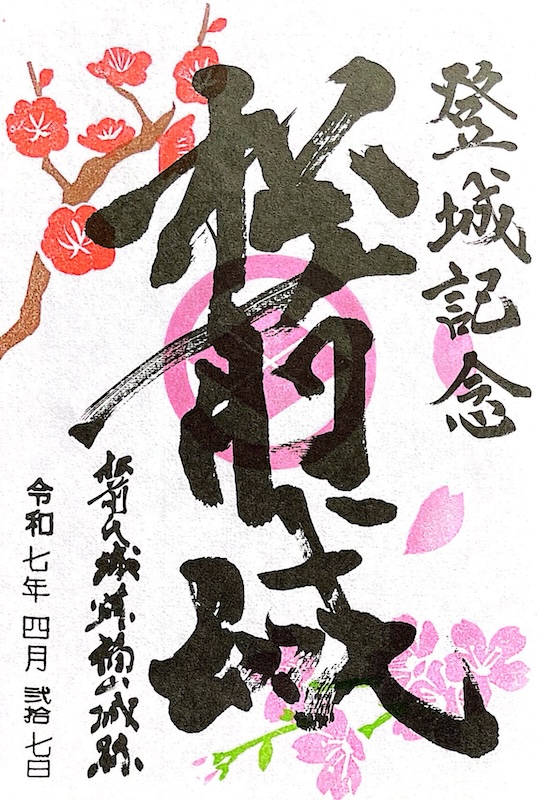 登城記念
松前城
松前氏城跡福山城跡
令和七年 四月 弐拾七日